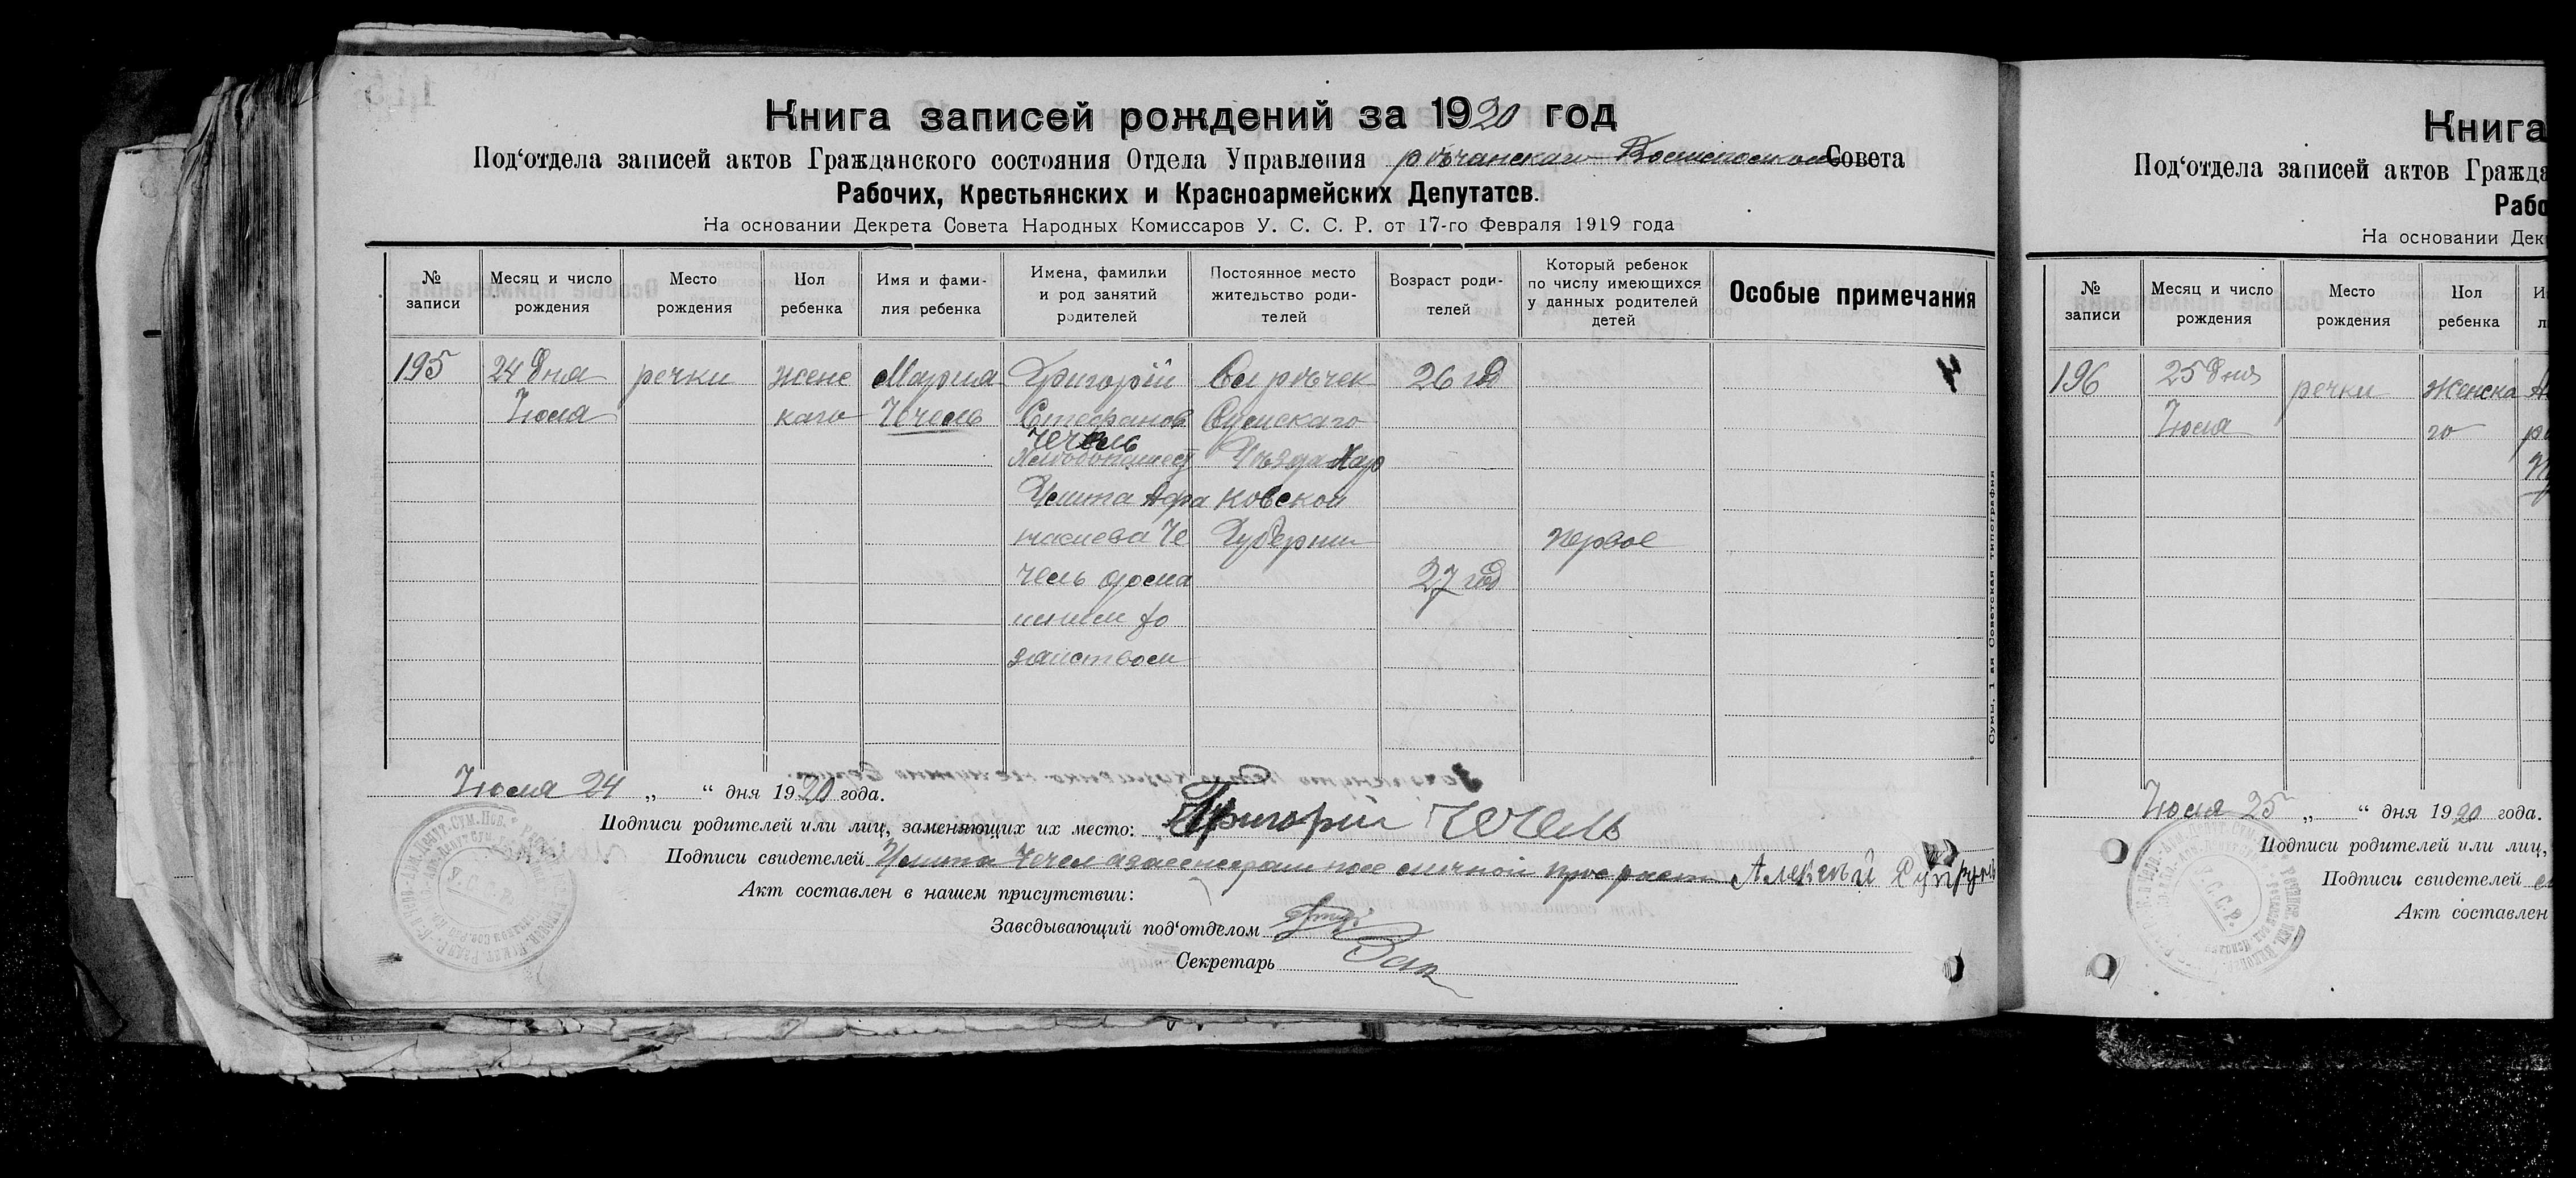 Книга записей рождений за 1920 год
Под‘отдела записей актов Гражданского состояния Отдела Управления речанскаго Совета
Рабочих, Крестьянских и Красноармейских Депутатов.
На основании Декрета Совета Народных Комиссаров У. С. С. Р. от 17-го Февраля 1919 года
№ записи
Месяц и число рождения
Место рождения
Пол ребенка
Имя и фами-
лия ребенка
Имена, фамилии
и род занятий
родителей
Постоянное место
жительство роди-
телей
Возраст роди-
телей
Который ребенок
по числу имеющихся
у данных родителей
детей
Особые примечания
195
24 дня
Июля
речки
женс
каго
Мария
Чечель
Григорій
Стефанов
Чечель
Хлебопашест
Улита Афа
насиева Че
чель дома
шним хо
зайством
Сел речек
Сумскаго
Уезда Хар
ковской
Губернии
26 год
27 год
первое
Июля 24 „ “ дня 1920 года.
Подписи родителей или лиц, заменяющих их место: Григорій Чечель
Подписи свидетелей Улита Чечел Алексѣй
Акт составлен в нашем присутствии:
Заведывающий под‘отделом
Секретарь
Сумы, 1 ая Советская типография
Книга
Под‘отдела записей актов Гражда
Рабо
На основании Дек
№ записи
Месяц и число рождения
Место рождения
Пол ребенка
196
25 дня
Июля
речки
женска
го
Июля 25 „ “ дня 1920 года.
Подписи родителей или лиц,
Подписи свидетелей
Акт составлен